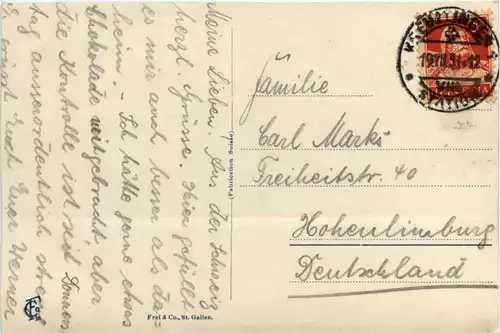 Meine Lieben! Aus der Schweiz
herzl. Grüsse. Hier gefällt
es mir auch besser als da-
heim. - Ich hätte gerne etwas
Schokolade mitgebracht, aber
die Kontrolle ist seit Donners
tag ausserordentlich streng
Es grüsst Euch Euer Werner
(Fabrication Suisse)
Frei & Co., St. Gallen.
19.VII.31.-12
Familie
Carl Marks
Freiheitstr. 40
Hohenlimburg
Deutschland